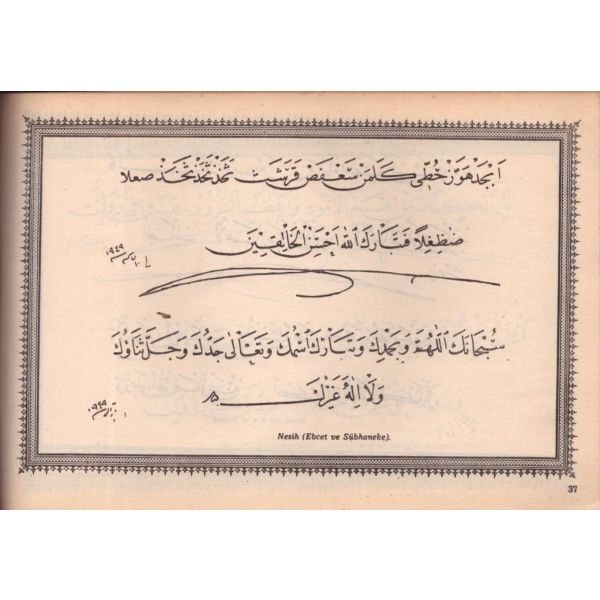 اَبْجَدْ هَوَّزْ حُطِّي كَلَمَنْ سَعْفَصْ قَرَشَتْ ثَخَذْ
ضَظِغِلاً فَتَبَارَكَ اللهُ اَحْسَنُ الْخَالِقِينَ
١٩٤٩
سُبْحَانَكَ اللّٰهُمَّ وَبِحَمْدِكَ وَتَبَارَكَ اسْمُكَ وَتَعَالٰى جَدُّكَ وَجَلَّ ثَنَاؤُكَ
وَلَا اِلٰهَ غَيْرُكَ
١٩٤٩
Nesih (Ebcet ve Sübhaneke).
37